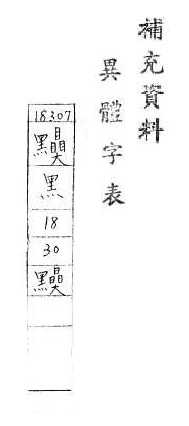 補充資料
異體字表
18307
黑
18
30